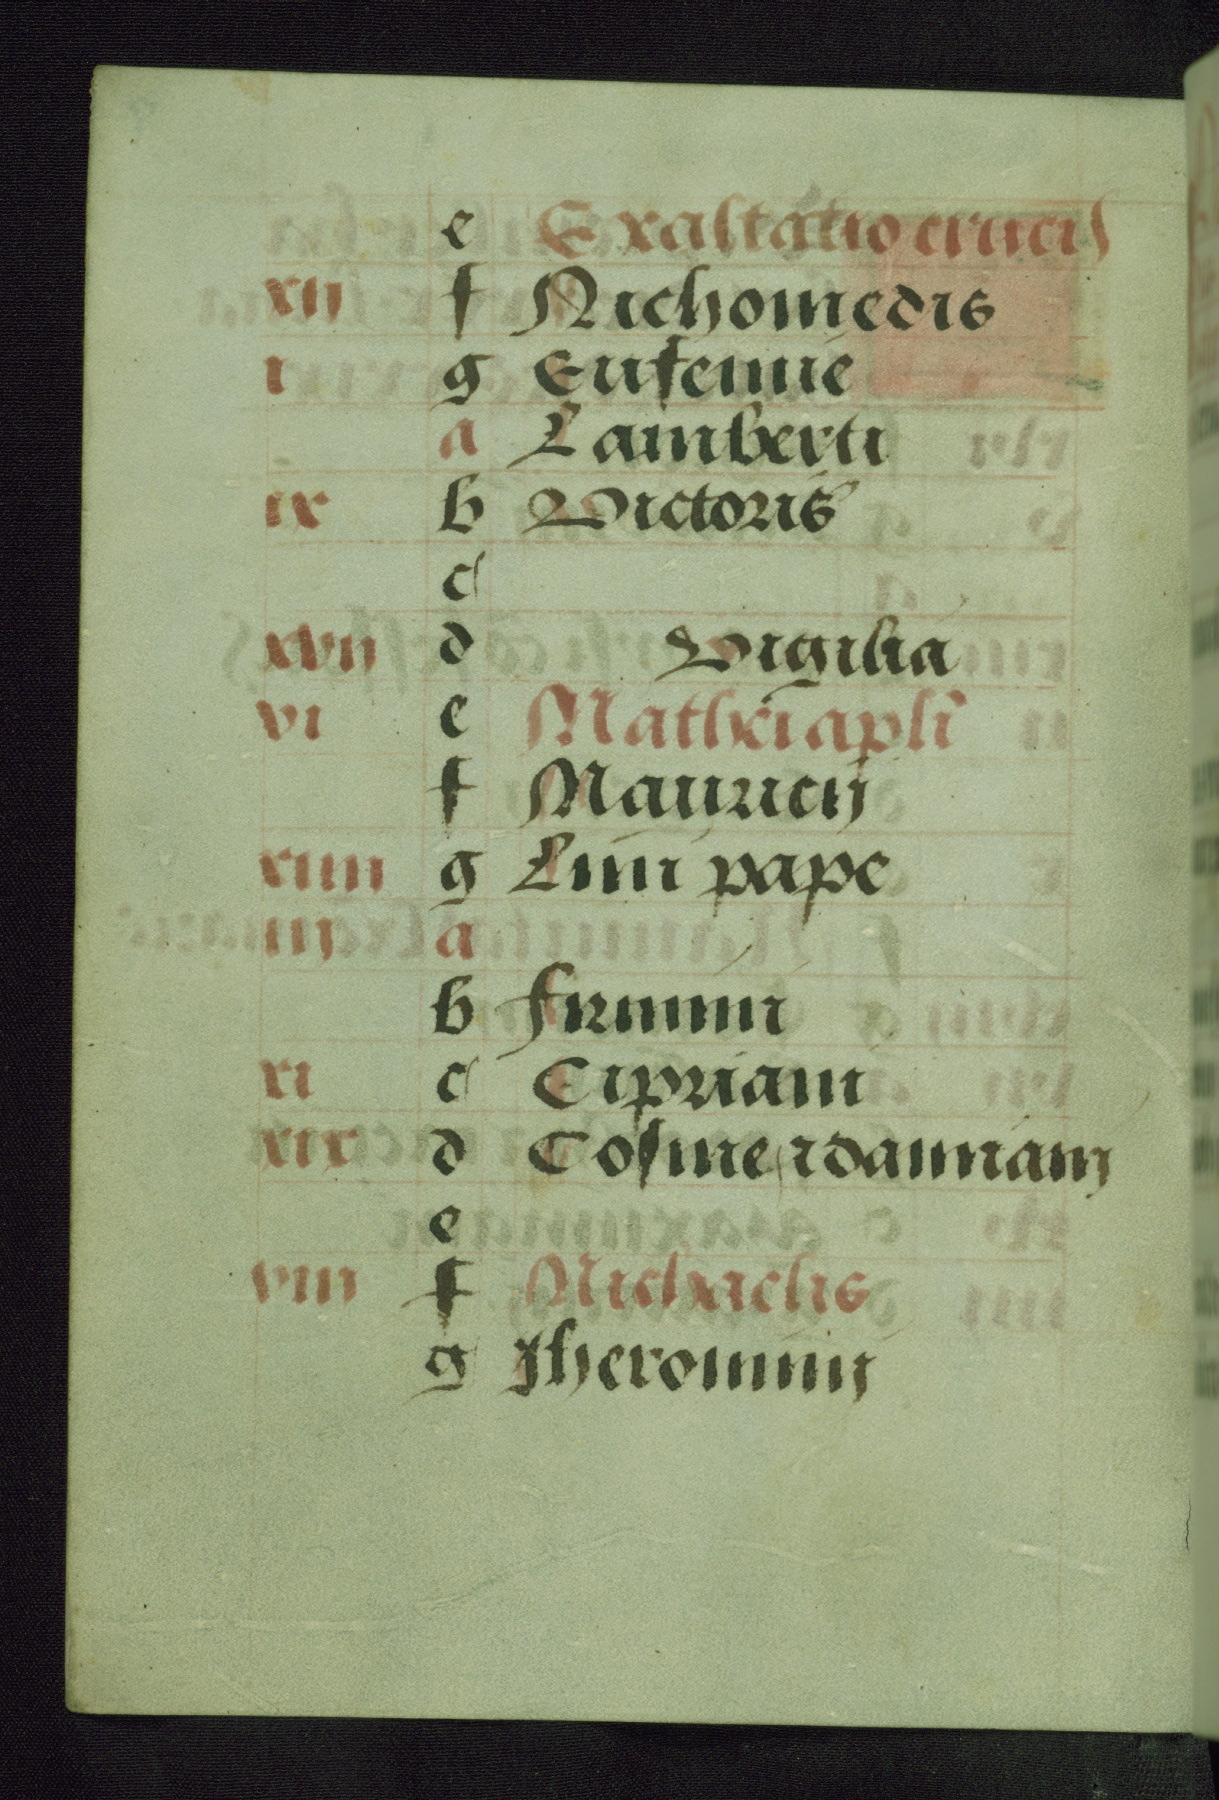 e Exaltatio crucis
xii f Nichomedis
i g Eufemie
a Lamberti
ix b Victoris
c
xvii d Vigilia
vi e Mathei apli
f Mauricij
xiiii g Lini pape
iij a
b firmini
xi c Cipriani
xix d Cosme ⁊ damianj
e
viii f Michaelis
g Jheronimij